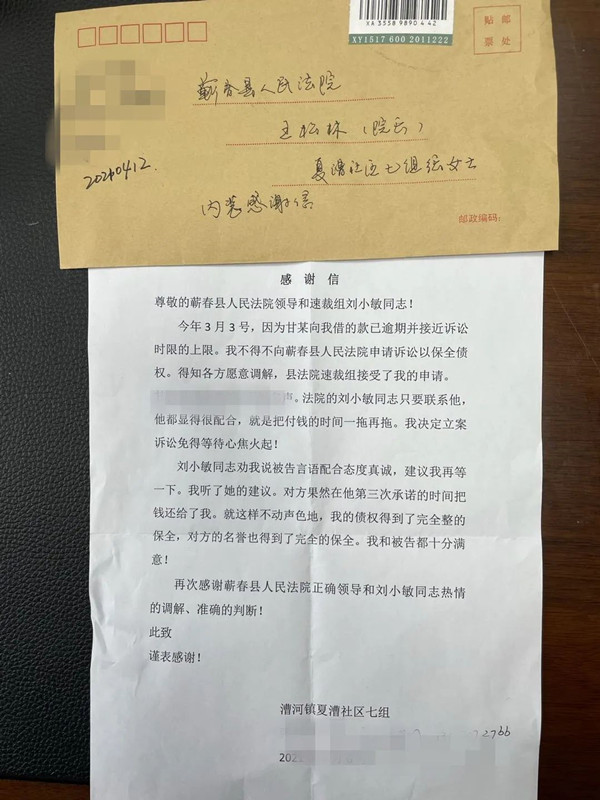 XA 3558 9890 4 42
XY1517 600 2011222
贴 邮
票 处
蕲春县人民法院
王松林（院长）
夏漕社区七组张女士
20210412.
内装感谢信
邮政编码：
感 谢 信
尊敬的蕲春县人民法院领导和速裁组刘小敏同志！
今年3月3号，因为甘某向我借的款已逾期并接近诉讼
时限的上限。我不得不向蕲春县人民法院申请诉讼以保全债
权。得知各方愿意调解，县法院速裁组接受了我的申请。
。法院的刘小敏同志只要联系他，
他都显得很配合，就是把付钱的时间一拖再拖。我决定立案
诉讼免得等待心焦火起！
刘小敏同志劝我说被告言语配合态度真诚，建议我再等
一下。我听了她的建议。对方果然在他第三次承诺的时间把
钱还给了我。就这样不动声色地，我的债权得到了完全整的
保全，对方的名誉也得到了完全的保全。我和被告都十分满
意！
再次感谢蕲春县人民法院正确领导和刘小敏同志热情
的调解、准确的判断！
此致
谨表感谢！
漕河镇夏漕社区七组
2766
202